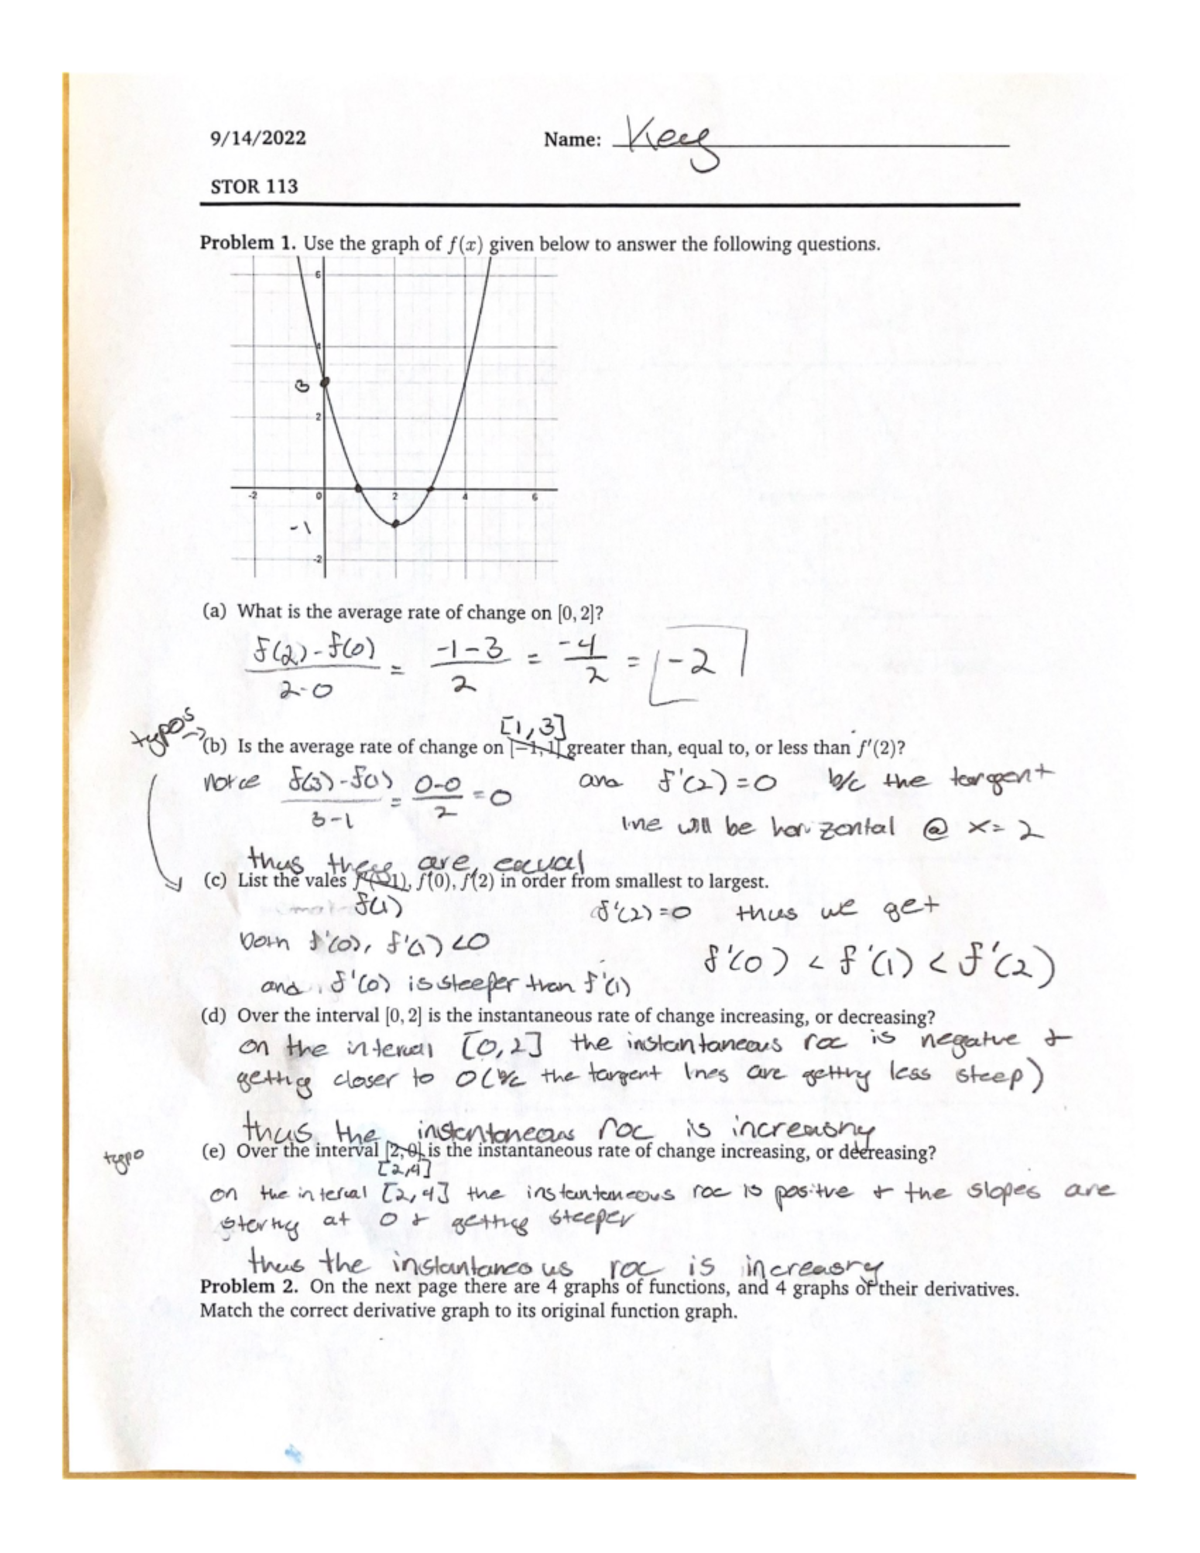 9/14/2022 Name: Key
STOR 113
Problem 1. Use the graph of f(x) given below to answer the following questions.
6
4
3
2
-2 0 2 4 6
-1
-2
(a) What is the average rate of change on [0, 2]?
f(2)-f(0) / 2-0 = -1-3 / 2 = -4 / 2 = -2
[1,3]
typos → (b) Is the average rate of change on [-1, 1] greater than, equal to, or less than f′(2)?
notice f(3)-f(1) / 3-1 = 0-0 / 2 = 0 and f'(2)=0 b/c the tangent
line will be horizontal @ x=2
thus these are equal
(c) List the vales f′(-1), f′(0), f′(2) in order from smallest to largest.
f(1) f'(2)=0 thus we get
both f'(0), f'(1) <0 f'(0) < f'(1) < f'(2)
and f'(0) is steeper than f'(1)
(d) Over the interval [0, 2] is the instantaneous rate of change increasing, or decreasing?
on the interval [0,2] the instantaneous roc is negative +
getting closer to 0 (b/c the tangent lines are getting less steep)
thus the instantaneous roc is increasing
typo (e) Over the interval [2, 0] is the instantaneous rate of change increasing, or decreasing?
[2,4]
on the interval [2,4] the instantaneous roc is positive + the slopes are
starting at 0 + getting steeper
thus the instantaneous roc is increasing
Problem 2. On the next page there are 4 graphs of functions, and 4 graphs of their derivatives.
Match the correct derivative graph to its original function graph.